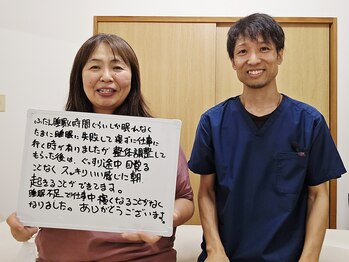 ふだん睡眠時間ぐらいしか眠れなく
たまに睡眠に失敗して寝ずに仕事に
行く時がありましたが整体調整して
もらった後は、ぐっすり途中目覚る
ことなくスッキリいい感じに朝
起きることができてます。
睡眠不足で仕事中痛くなることがなく
なりました。ありがとうございます。